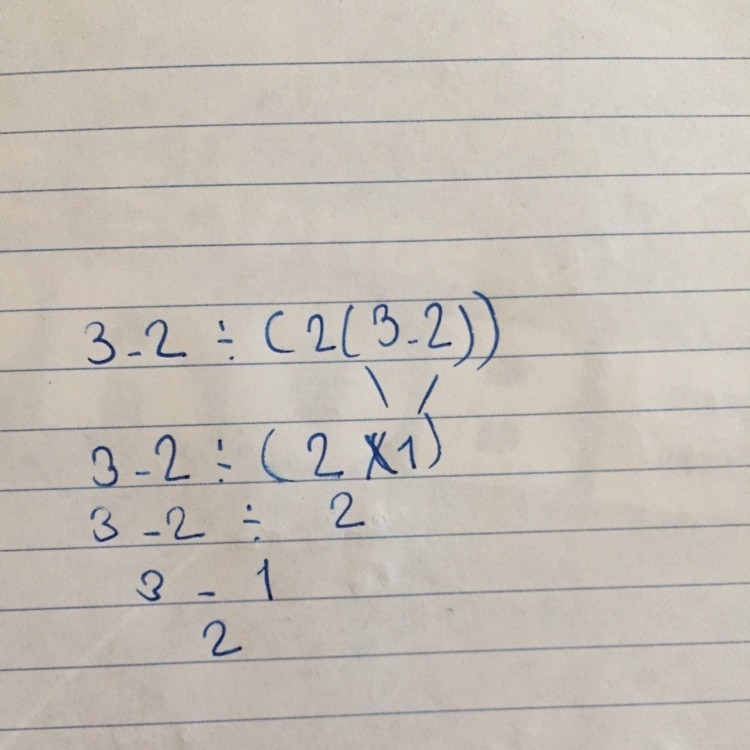 3-2 ÷ (2(3-2))
3-2 ÷ (2 x1)
3 -2 ÷ 2
3 - 1
2